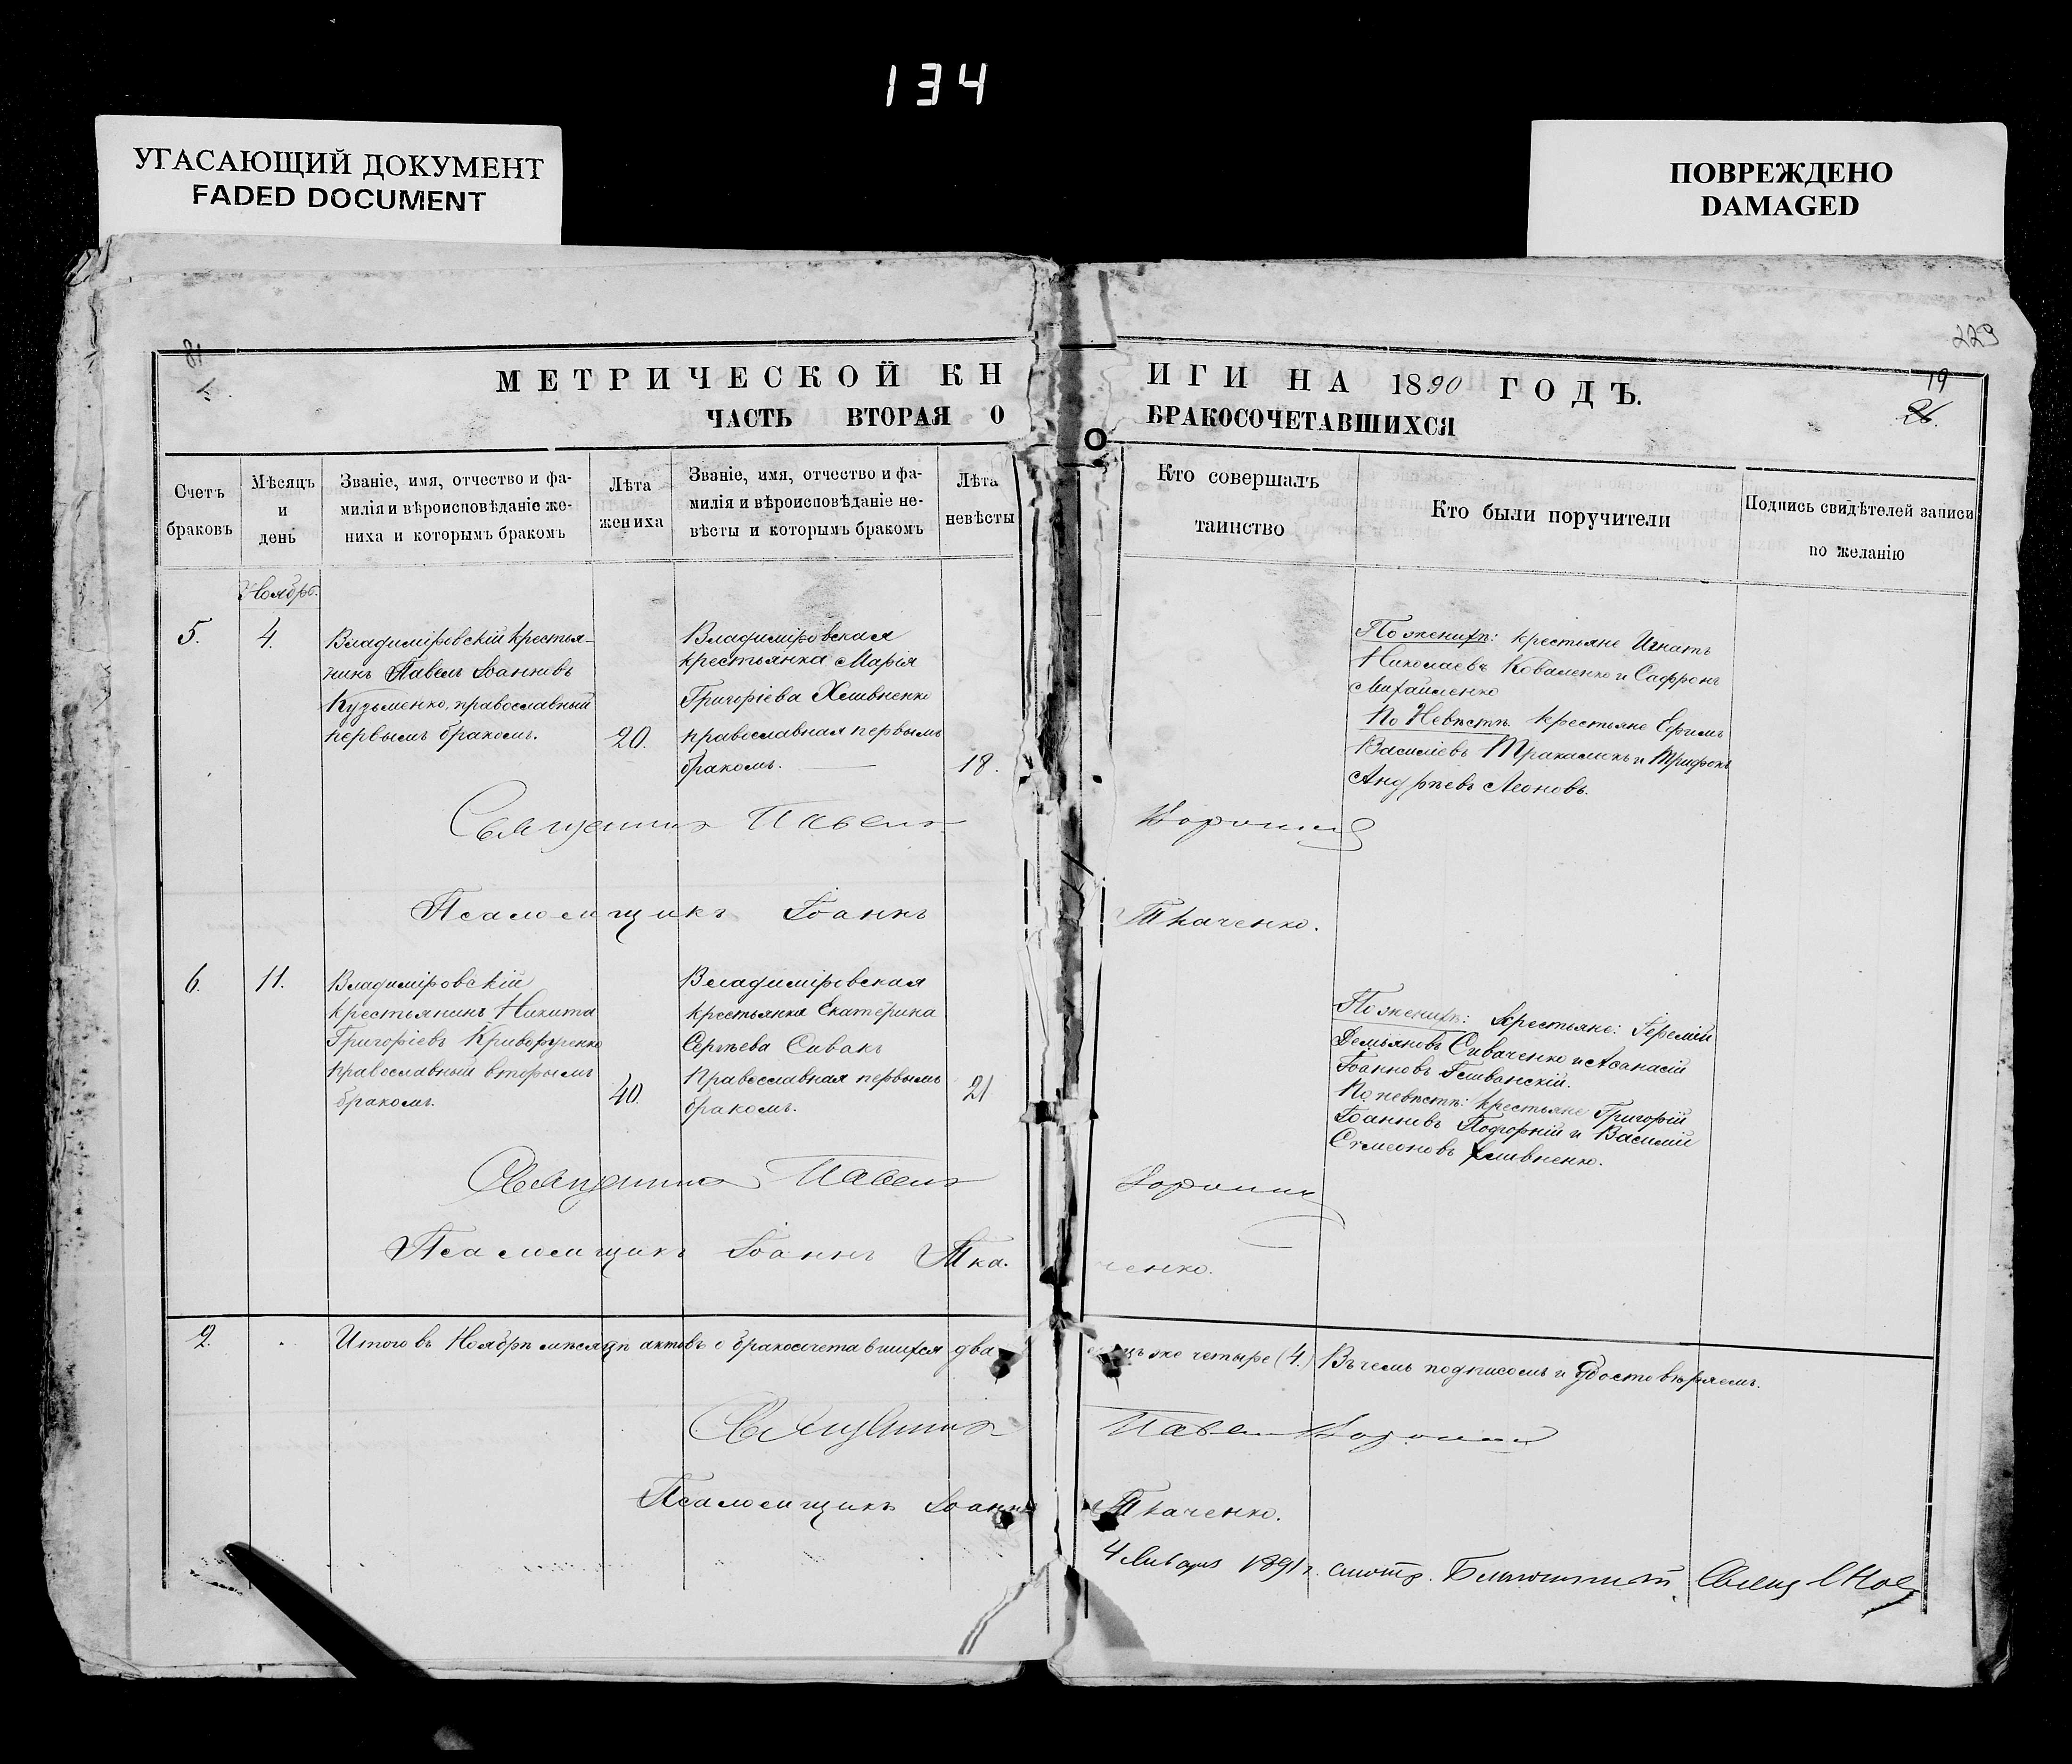 134
УГАСАЮЩИЙ ДОКУМЕНТ
FADED DOCUMENT
ПОВРЕЖДЕНО
DAMAGED
229
81
19
26.
МЕТРИЧЕСКОЙ КНИГИ НА 1890 ГОДЪ.
ЧАСТЬ ВТОРАЯ О БРАКОСОЧЕТАВШИХСЯ
Счетъ
браковъ
Мѣсяцъ
и
день
Званіе, имя, отчество и фа-
милія и вѣроисповѣданіе же-
ниха и которымъ бракомъ
Лѣта
жениха
Званіе, имя, отчество и фа-
милія и вѣроисповѣданіе не-
вѣсты и которымъ бракомъ
Лѣта
невѣсты
Кто совершалъ
таинство
Кто были поручители
Подпись свидѣтелей записи
по желанію
Ноябрь.
5.
4.
Владиміровскій крестья-
нинъ Павелъ Іоанновъ
Кузьменко, православный
первымъ бракомъ.
20.
Владиміровская
крестьянка Марія
Григоріева Хливненко
православная первымъ
бракомъ.
18.
По женихѣ: крестьяне Игнатъ
Николаевъ Коваленко и Сафронъ
Михайленко
По Невѣстѣ крестьяне Ефимъ
Василіевъ и Трифонъ
Андреевъ Леоновъ.
Священникъ Павелъ
Псаломщикъ Іоаннъ Ткаченко.
6.
11.
Владиміровскій
крестьянинъ Никита
Григоріевъ
православный вторымъ
бракомъ.
40.
Владиміровская
крестьянка Екатерина
Сергѣева Сивакъ
Православная первымъ
бракомъ.
21
По женихѣ: крестьяне: Іеремій
Демьяновъ Сиваченко и Афанасій
Іоанновъ
По невѣстѣ: крестьяне Григорій
Іоанновъ и Василій
Симеоновъ Хливненко.
Священникъ Павелъ
Псаломщикъ Іоаннъ Ткаченко.
2.
Итого въ Ноябрѣ мѣсяцѣ актовъ о бракосочетавшихся два лицъ же четыре (4.) Въ чемъ подписомъ и удостовѣряемъ.
Священникъ Павелъ
Псаломщикъ Іоаннъ Ткаченко.
4 Января 1891 г. смотр. Благочинный, Свящ